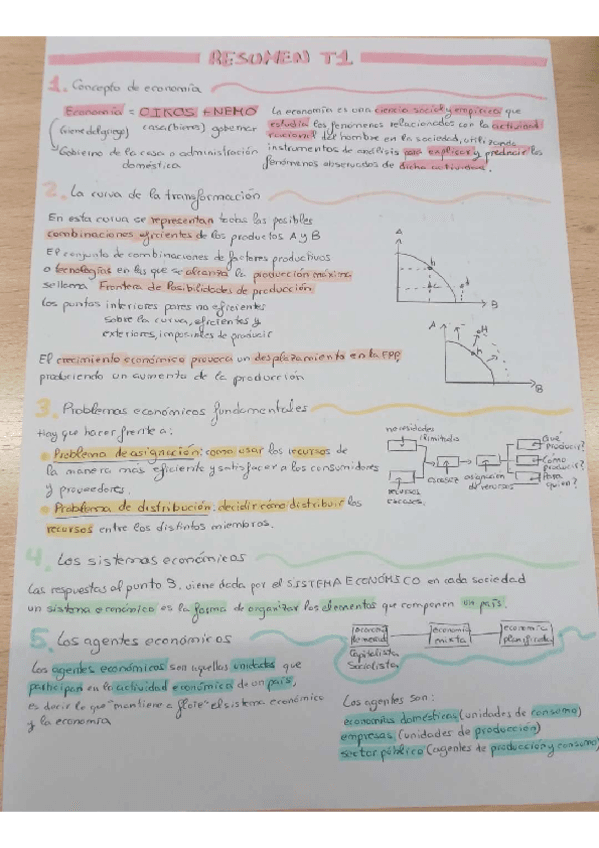 RESUMEN T1
1. Concepto de economía
Economía = OIKOS + NEMO
(viene del griego) casa(bienes) gobernar
Gobierno de la casa o administración
doméstica
La economía es una ciencia social y empírica que
estudia los fenómenos relacionados con la actividad
racional del hombre en la sociedad, utilizando
instrumentos de análisis para explicar y predecir los
fenómenos observados de dicha actividad.
2. La curva de la transformación
En esta curva se representan todas las posibles
combinaciones eficientes de los productos A y B
El conjunto de combinaciones de factores productivos
o tecnologías en las que se alcanza la producción máxima
se llama Frontera de Posibilidades de producción
Los puntos interiores pares no eficientes
sobre la curva, eficientes y
exteriores, imposibles de producir
El crecimiento económico provoca un desplazamiento en la FPP,
produciendo un aumento de la producción
A
h
d
B
A
H
h
B
3. Problemas económicos fundamentales
Hay que hacer frente a:
• Problema de asignación: como usar los recursos de
la manera más eficiente y satisfacer a los consumidores
y proveedores.
• Problema de distribución: decidir cómo distribuir los
recursos entre los distintos miembros.
necesidades
ilimitadas
recursos
escasos.
escasez
asignación
de recursos
Qué
producir?
Cómo
producir?
Para
quien?
4. Los sistemas económicos
Las respuestas al punto 3, viene dada por el SISTEMA ECONÓMICO en cada sociedad
un sistema económico es la forma de organizar los elementos que componen un país.
economía
mixta
economía
planificada
Capitalista
Socialista
5. Los agentes económicos
Los agentes económicos son aquellas unidades que
participan en la actividad económica de un país,
es decir lo que "mantiene a flote" el sistema económico
y la economía
Los agentes son:
economías domésticas (unidades de consumo)
empresas (unidades de producción)
sector público (agentes de producción y consumo)